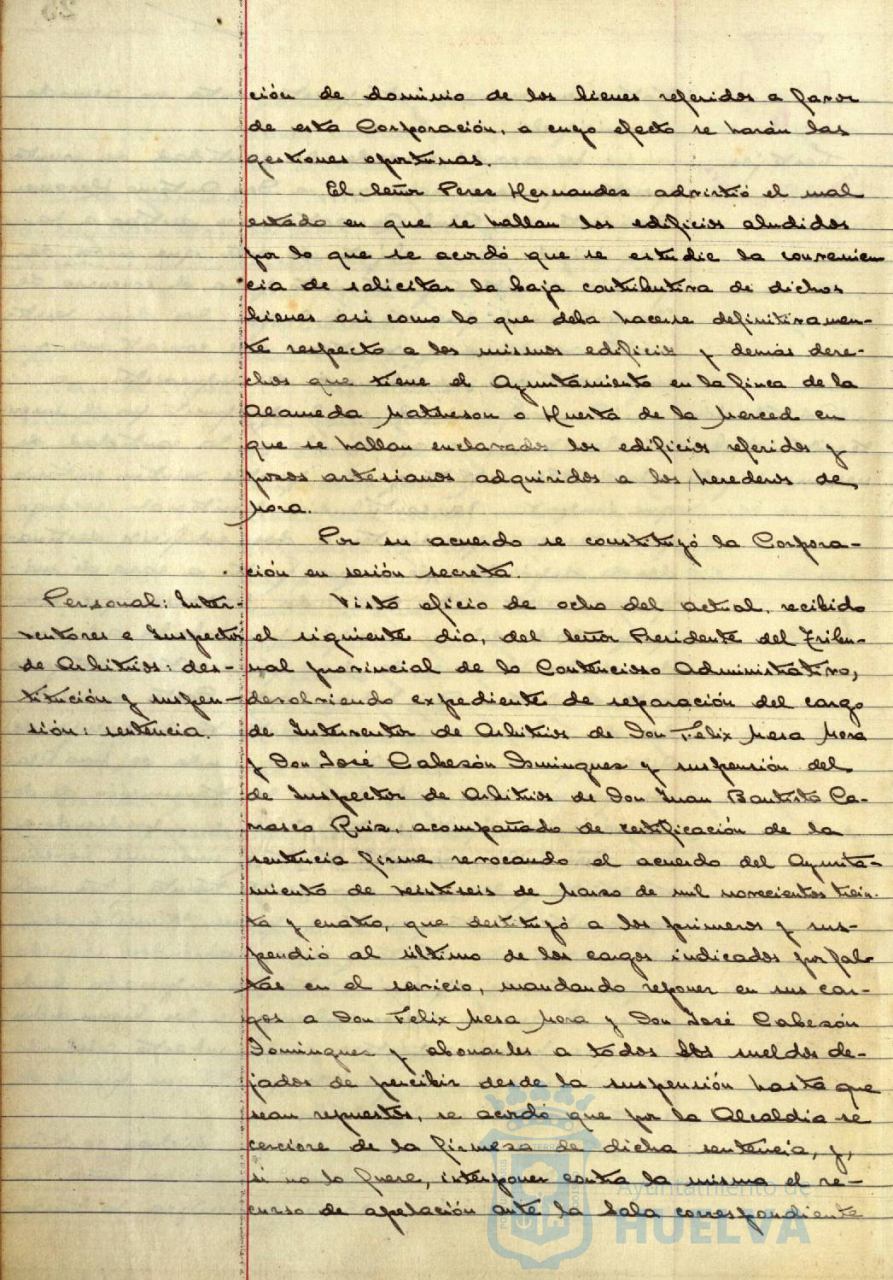 ción de dominio de los bienes referidos a favor
de esta Corporación, a cuyo efecto se harán las
gestiones oportunas.
El señor Perez Hernandez advirtió el mal
estado en que se hallan los edificios aludidos
por lo que se acordó que se estudie la convenien
cia de solicitar la baja contributiva de dichos
bienes asi como lo que deba hacerse definitivamen-
te respecto a los mismos edificios y demás dere-
chos que tiene el Ayuntamiento en la finca de la
Alameda Matheson o Huerta de la Merced en
que se hallan enclavados los edificios referidos y
pozos artesianos adquiridos a los herederos de
Mora.
Por su acuerdo se constituyó la Corpora-
ción en sesión secreta.
Personal: Inter-
ventores e Inspector
de Arbitrios: des-
titución y suspen-
sión: sentencia.
Visto oficio de ocho del actual, recibido
el siguiente dia, del señor Presidente del Tribu-
nal provincial de lo Contencioso Administrativo,
devolviendo expediente de separación del cargo
de Interventor de Arbitrios de Don Felix Mesa Mora
y Don José Cabezón Dominguez y suspensión del
de Inspector de Arbitrios de Don Juan Bautista Ca-
rrasco Ruiz, acompañado de certificación de la
sentencia firme revocando el acuerdo del Ayunta-
miento de veintiseis de Marzo de mil novecientos trein-
ta y cuatro, que destituyó a los primeros y sus-
pendió al último de los cargos indicados por fal-
tas en el servicio, mandando reponer en sus car-
gos a Don Felix Mesa Mora y Don José Cabezón
Dominguez y abonarles a todos los sueldos de-
jados de percibir desde la suspensión hasta que
sean repuestos, se acordó que por la Alcaldia se
cerciore de la firmeza de dicha sentencia, y,
si no lo fuere, interponer contra la misma el re-
curso de apelación ante la Sala correspondiente
Ayuntamiento de
HUELVA